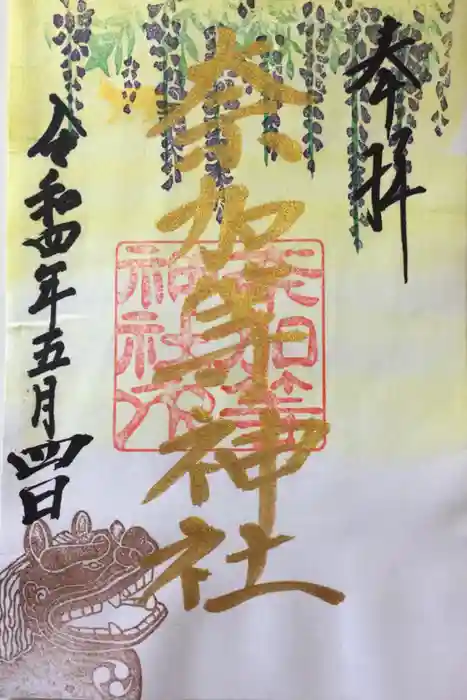 奉拝
奈加等神社
令和四年五月四日